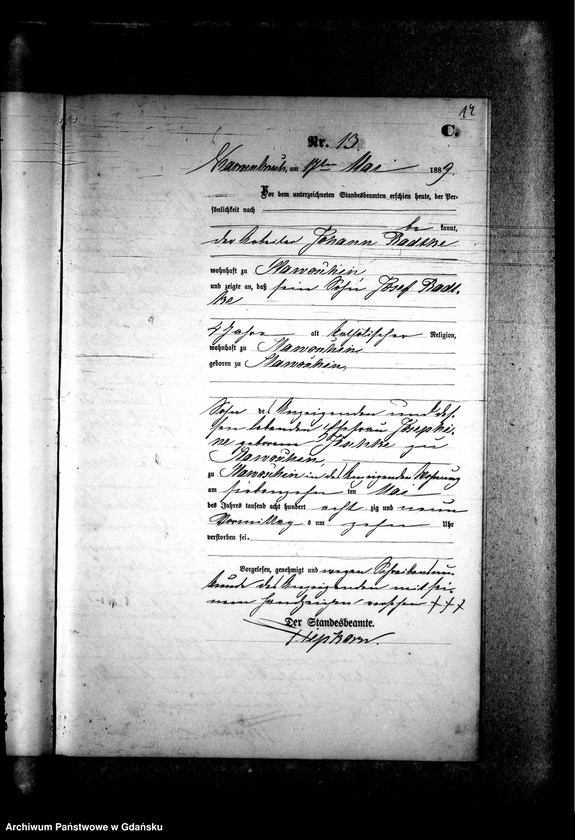 12
C.
Nr. 13.
am 17ten Mai 1889.
Vor dem unterzeichneten Standesbeamten erschien heute, der Per-
sönlichkeit nach
be kannt,
der Arbeiter Johann Radtke
wohnhaft zu
und zeigte an, daß sein Sohn Josef Radt-
ke
4 Jahre alt katholischer Religion,
wohnhaft zu
geboren zu
Sohn des Anzeigenden und des-
sen lebenden Ehefrau Josephi-
ne geborene zu
zu in des Anzeigenden Wohnung
am siebenzehn ten Mai
des Jahres tausend acht hundert acht zig und neun
Vormittag s um zehn Uhr
verstorben sei.
Vorgelesen, genehmigt und wegen Schreibensun-
kunde des Anzeigenden mit sei-
nem Handzeichen versehen +++
Der Standesbeamte.
Archiwum Państwowe w Gdańsku